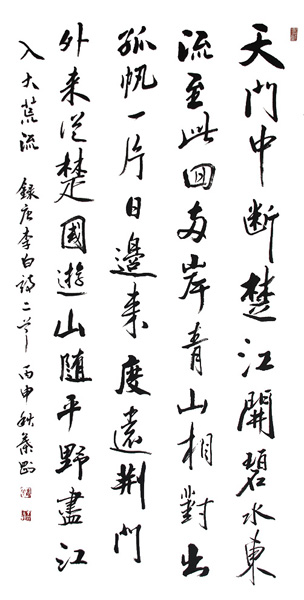 天門中斷楚江開碧水東
流至此回两岸青山相對出
孤帆一片日邊来度遠荆門
外来從楚國遊山随平野盡江
入大荒流 錄唐李白詩二首 丙申秋